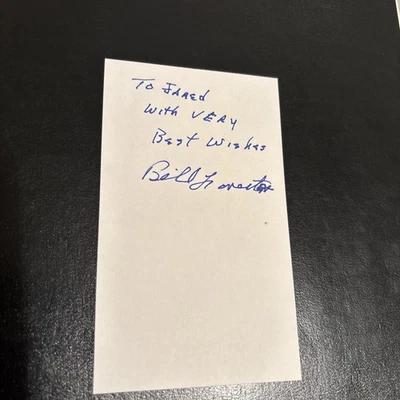 To JARED
With VERY
Best Wishes
Bill